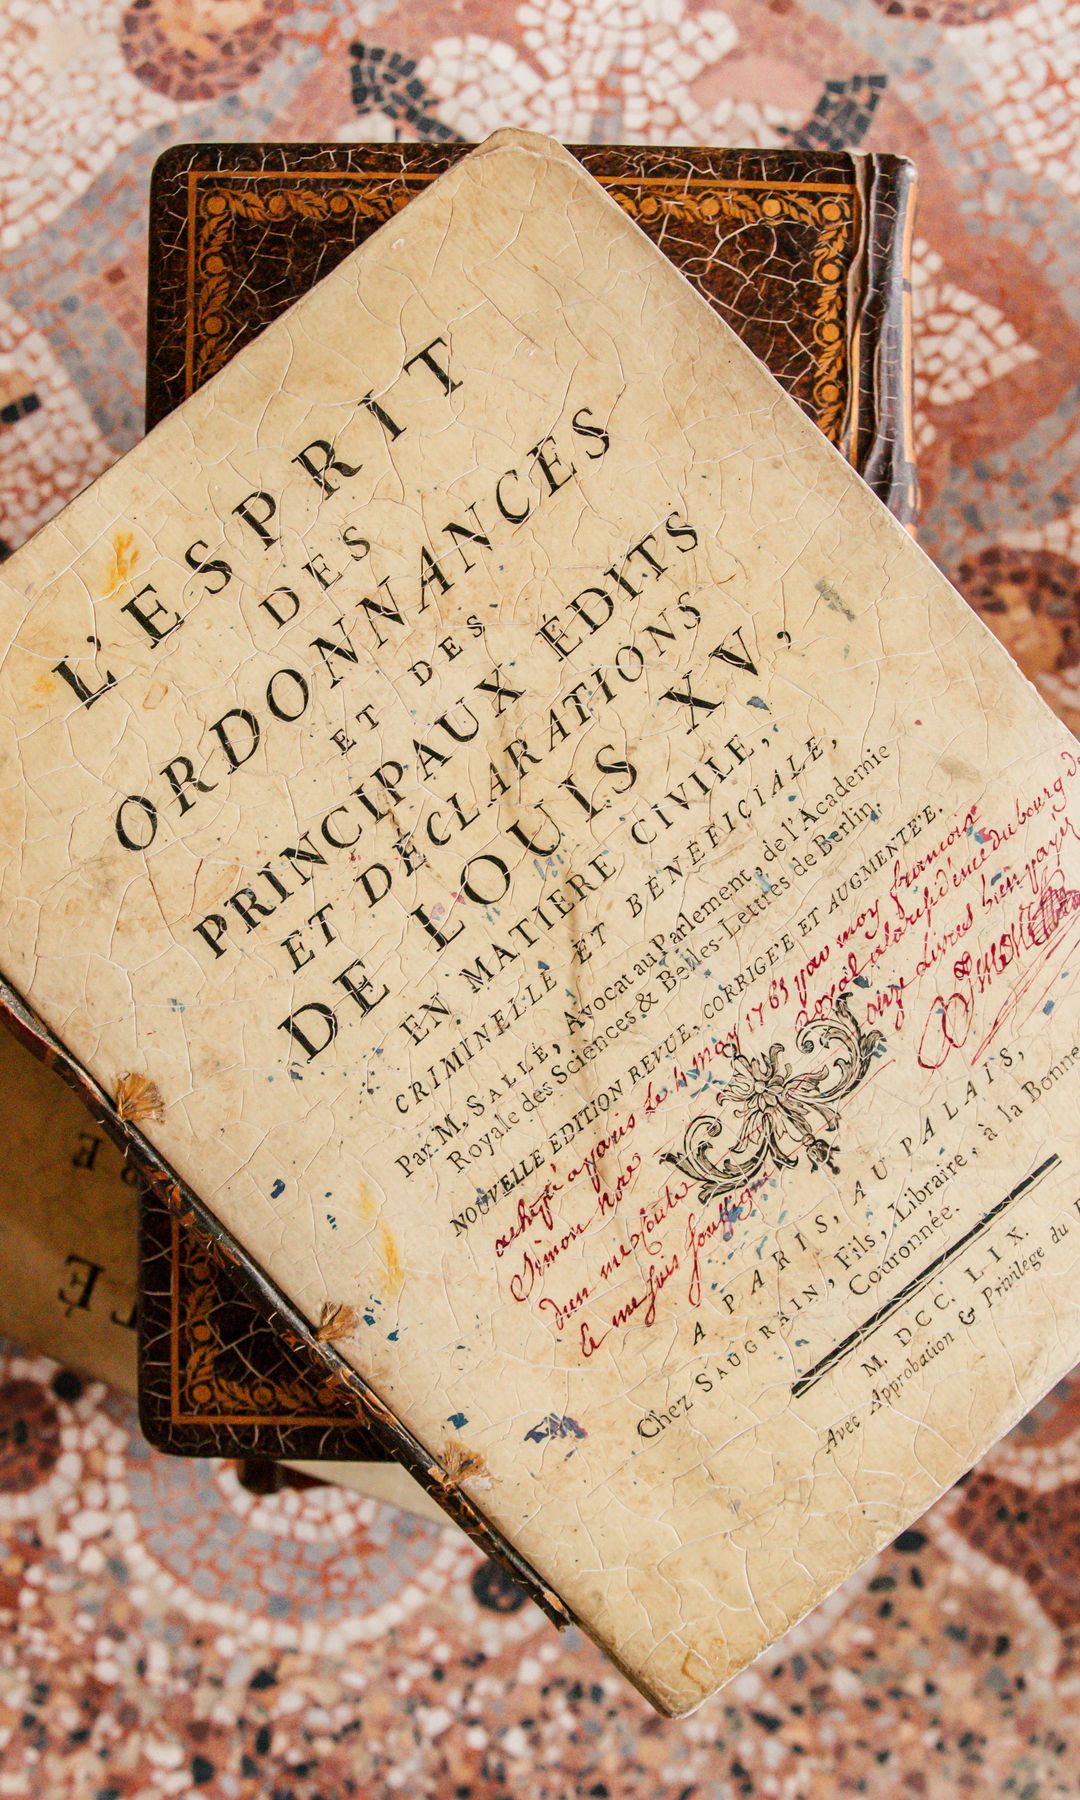 L'ESPRIT
DES
ORDONNANCES
ET DES
PRINCIPAUX ÉDITS
ET DÉCLARATIONS
DE LOUIS XV,
EN MATIERE CIVILE,
CRIMINELLE ET BÉNÉFICIALE,
Par M. SALLÉ, Avocat au Parlement, de l'Académie
Royale des Sciences & Belles-Lettres de Berlin.
NOUVELLE EDITION REVUE, CORRIGÉE ET AUGMENTÉE.
acheptè a paris Le 4 may 1763 par moy francois
Simon Royal a la residence du bourg
onze Livres bien payé
A PARIS, AU PALAIS,
Chez SAUGRAIN, Fils, Libraire, à la Bonne
Couronnée.
M. DCC. LIX.
Avec Approbation & Privilege du